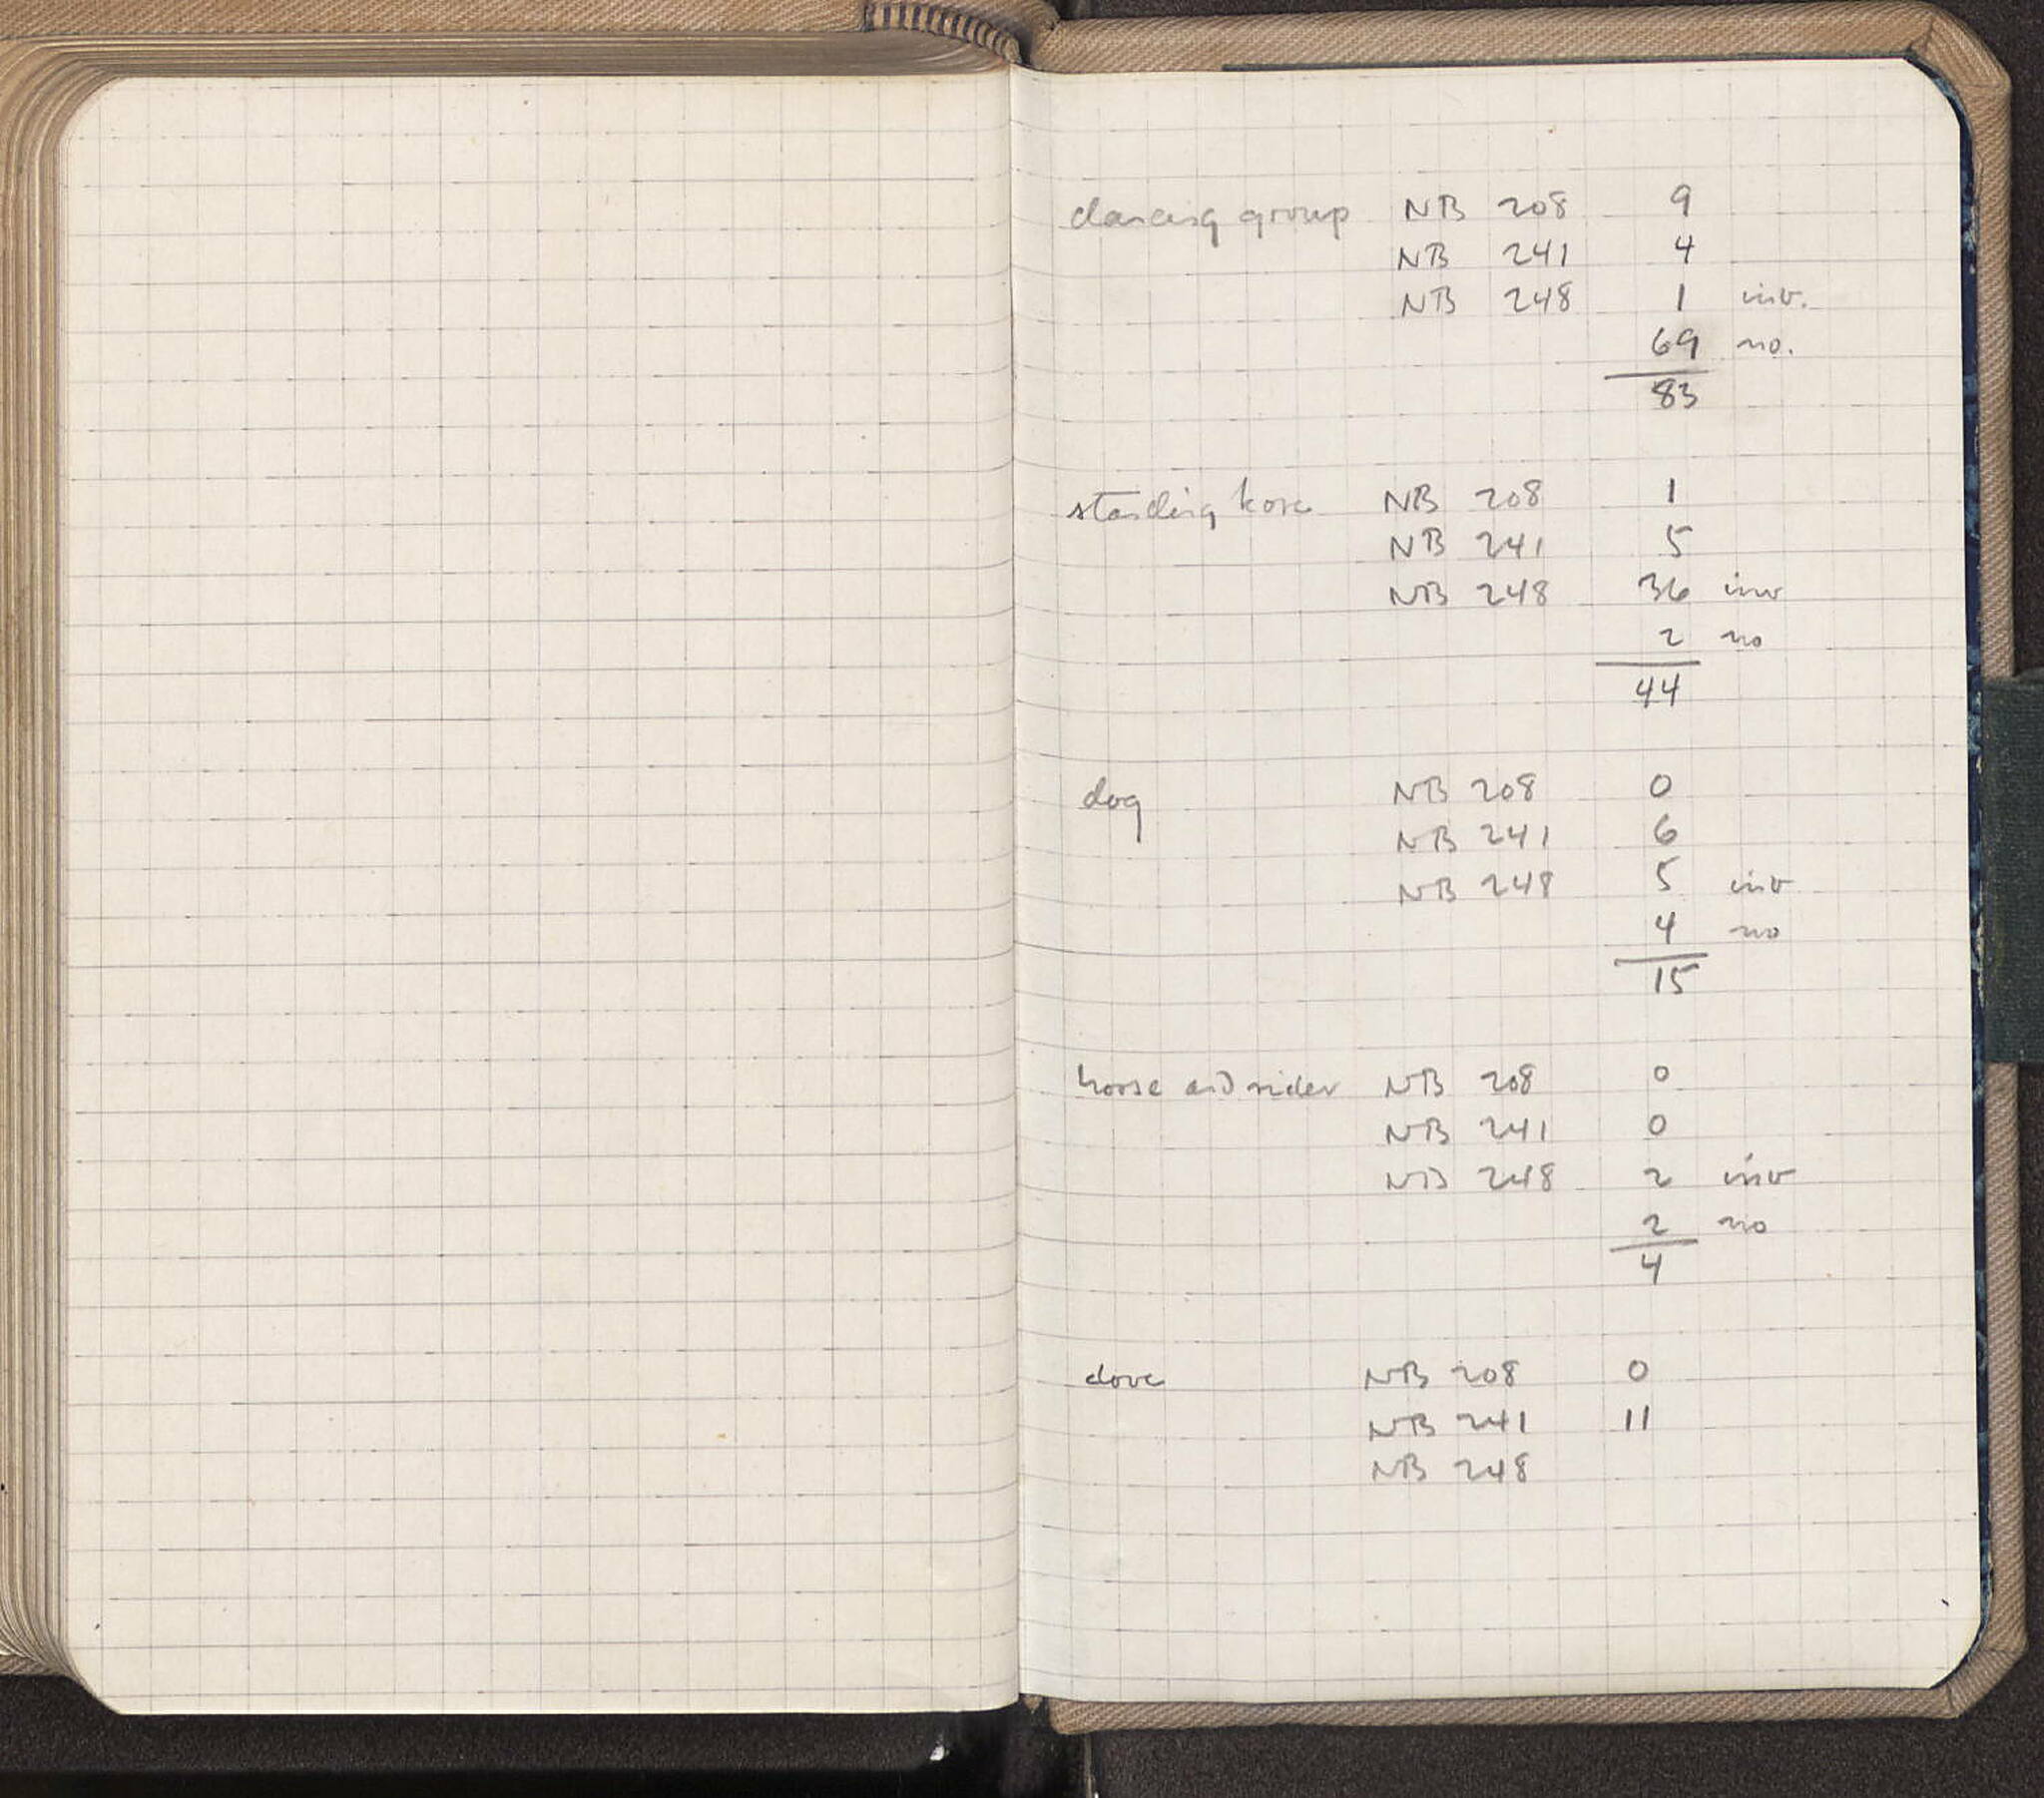 dancing group NB 208 9
NB 241 4
NB 248 1 inv.
69 no.
83
standing kore NB 208 1
NB 241 5
NB 248 36 inv
2 no
44
dog NB 208 0
NB 241 6
NB 248 5 inv
4 no
15
horse and rider NB 208 0
NB 241 0
NB 248 2 inv
2 no
4
dove NB 208 0
NB 241 11
NB 248